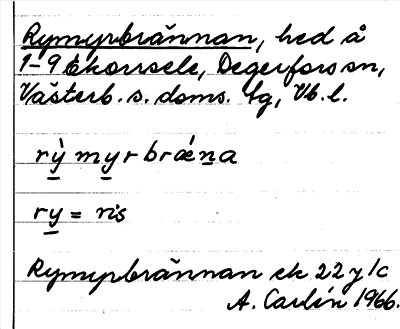 Rymyrbrännan, hed å
1-9 Ekorrsele, Degerfors sn,
Västerb. s. doms. tg, Vb. l.
rỳmyrbrǽna
ry = ris
Rymyrbrännan ek 22 y/c
A. Carlín 1966.